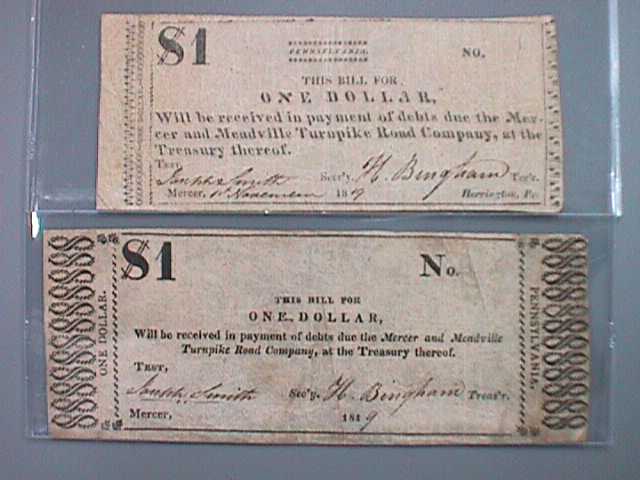 $1
PENNSYLVANIA.
NO.
THIS BILL FOR
ONE DOLLAR,
Will be received in payment of debts due the Mer-
cer and Meadville Turnpike Road Company, at the
Treasury thereof.
TEST,
Joseph Smith Sec'y. H. Bingham Tre'r.
Mercer, 1st November 1819 Herrington, Pr.
ONE DOLLAR.
$1
No.
THIS BILL FOR
ONE DOLLAR,
Will be received in payment of debts due the Mercer and Meadville
Turnpike Road Company, at the Treasury thereof.
TEST,
Joseph Smith Sec'y. H. Bingham Treas'r.
Mercer, 1819
PENNSYLVANIA.